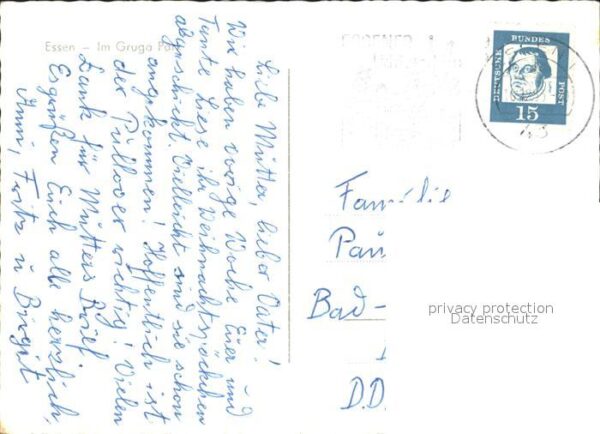 Essen – Im Gruga Pa
Liebe Mutter, lieber Vater!
Wir haben vorige Woche Euer und
Tante Liese ihr Weihnachtspäckchen
abgeschickt. Vielleicht sind sie schon
angekommen! Hoffentlich ist
der Pullover richtig! Vielen
Dank für Mutters Brief
Es grüßen Euch alle herzlich,
Anni, Fritz u Birgit
ESSENER
DEUTSCHE BUNDES POST
15
43
Familie
Pau
Bad-
D.D.
privacy protection
Datenschutz